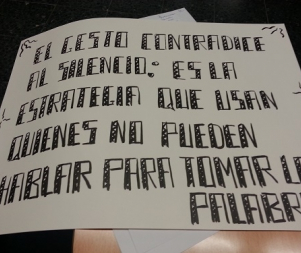 EL GESTO CONTRADICE
AL SILENCIO; ES LA
ESTRATEGIA QUE USAN
QUIENES NO PUEDEN
HABLAR PARA TOMAR L
PALABR